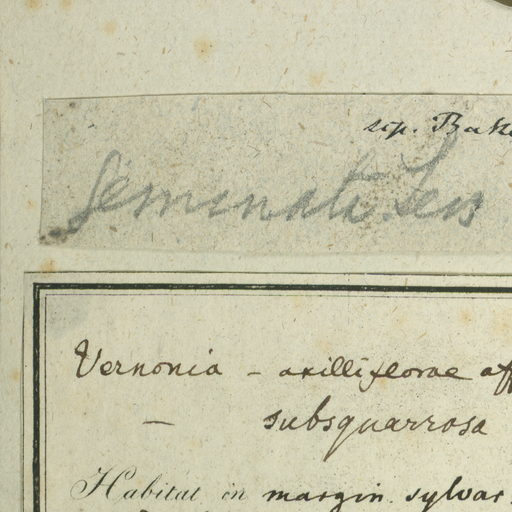 sep. Bak
geminata Less
Vernonia - axilliflorae aff
- subsquarrosa
Habitat in margin. sylvar.